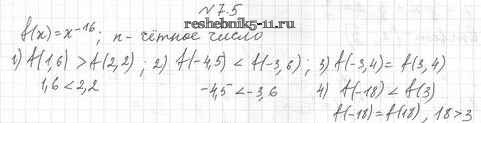 №7.5
reshebnik5-11.ru
f(x)=x⁻¹⁶; n- чётное число
1) f(1,6) > f(2,2); 2) f(-4,5) < f(-3,6); 3) f(-3,4) = f(3,4)
1,6 < 2,2 -4,5 < -3,6 4) f(-18) < f(3)
f(-18) = f(18), 18 > 3